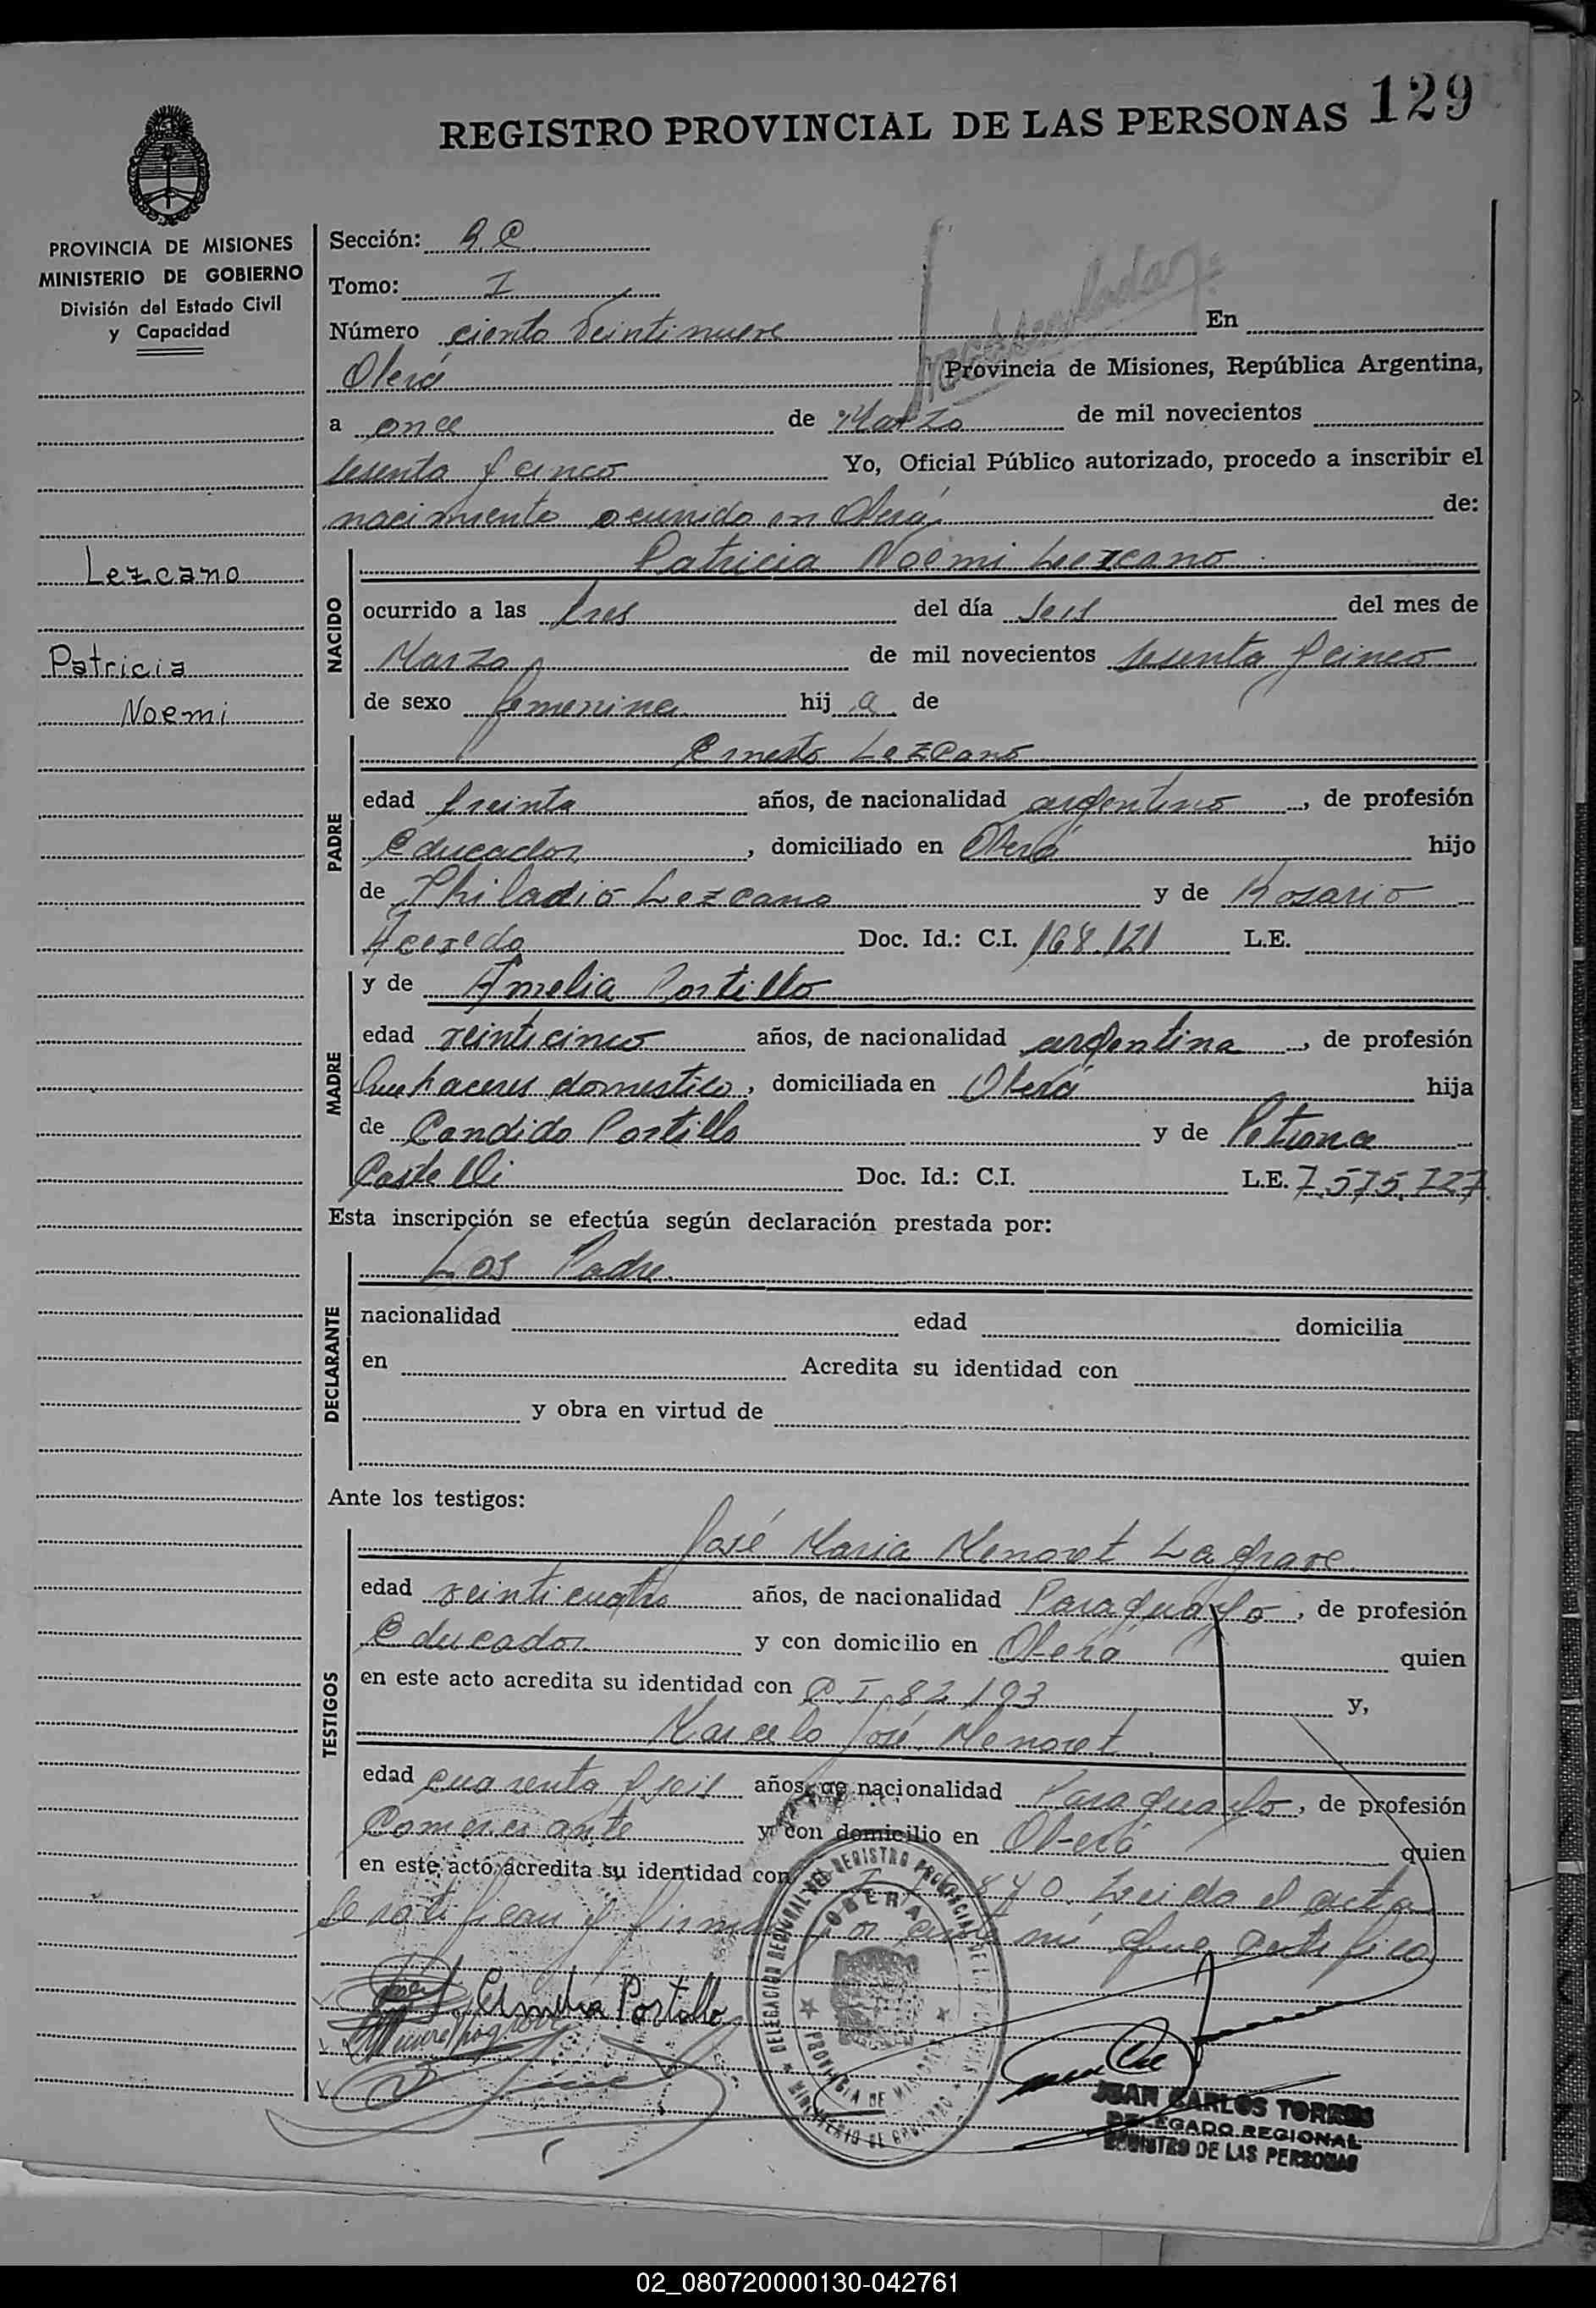 129
REGISTRO PROVINCIAL DE LAS PERSONAS
PROVINCIA DE MISIONES
MINISTERIO DE GOBIERNO
División del Estado Civil
y Capacidad
Lezcano
Patricia
Noemi
Sección:
Tomo: I
Número ciento veintinueve En
Oberá Provincia de Misiones, República Argentina,
a once de Marzo de mil novecientos
sesenta y cinco Yo, Oficial Público autorizado, procedo a inscribir el
nacimiento ocurrido en Oberá de:
NACIDO
Patricia Noemi Lezcano
ocurrido a las tres del día seis del mes de
Marzo de mil novecientos sesenta y cinco
de sexo femenina hija de
PADRE
Ernesto Lezcano
edad treinta años, de nacionalidad argentino, de profesión
Educador, domiciliado en Oberá hijo
de Lezcano y de Rosario
Acevedo Doc. Id.: C.I. 168.121 L.E.
MADRE
y de Amelia Portillo
edad veinticinco años, de nacionalidad argentina, de profesión
Quehaceres domestico, domiciliada en Oberá hija
de Candido Portillo y de Petrona
Castelli Doc. Id.: C.I. L.E. 7.575.727
Esta inscripción se efectúa según declaración prestada por:
DECLARANTE
Los Padre
nacionalidad edad domicilia
en Acredita su identidad con
y obra en virtud de
Ante los testigos:
TESTIGOS
José Maria Menoret Lagrave
edad veinticuatro años, de nacionalidad Paraguayo, de profesión
Educador y con domicilio en Oberá quien
en este acto acredita su identidad con C.I. 82.193 y,
Marcelo José Menoret
edad cuarenta y seis años, de nacionalidad Paraguayo, de profesión
Comerciante y con domicilio en Oberá quien
en este acto acredita su identidad con Leida el acta
se ratifican y firman por ante mi que certifico
Amelia Portillo
DELEGACION REGIONAL DEL REGISTRO PROVINCIAL DE LAS PERSONAS
OBERA
PROVINCIA DE MISIONES
MINISTERIO DE GOBIERNO
JUAN CARLOS TORRES
DELEGADO REGIONAL
REGISTRO DE LAS PERSONAS
02_080720000130-042761